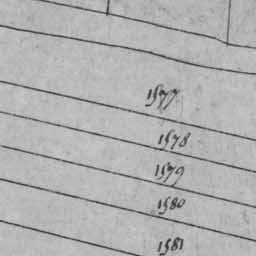 1577
1578
1579
1580
1581